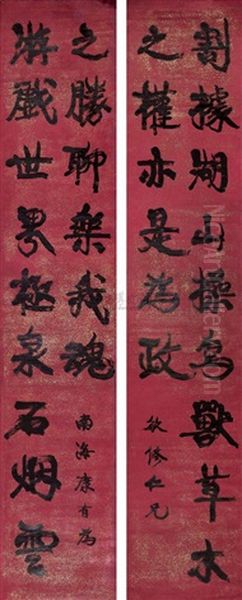 割據湖山操鳥獸草木
之權亦是為政
修仁兄
游戲世界極泉石烟雲
之勝聊樂我魂
南海康有為